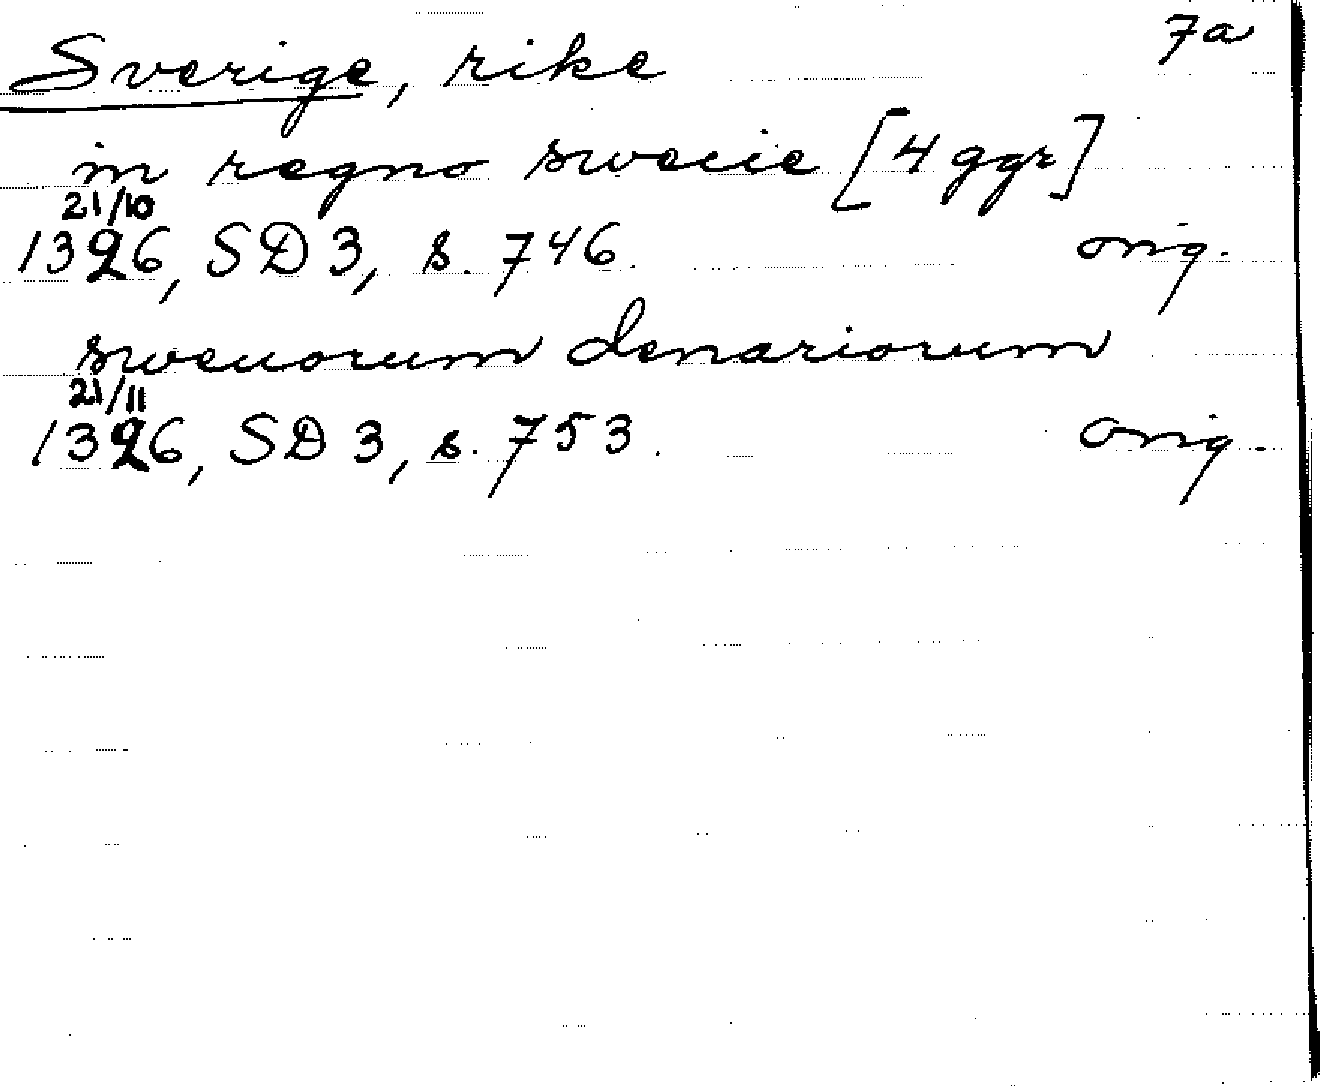 Sverige, rike 7a
in regno swecie [4 ggr]
21/10
1326, SD 3, s. 746. orig.
sweuorum denariorum
21/11
1326, SD 3, s. 753. orig.